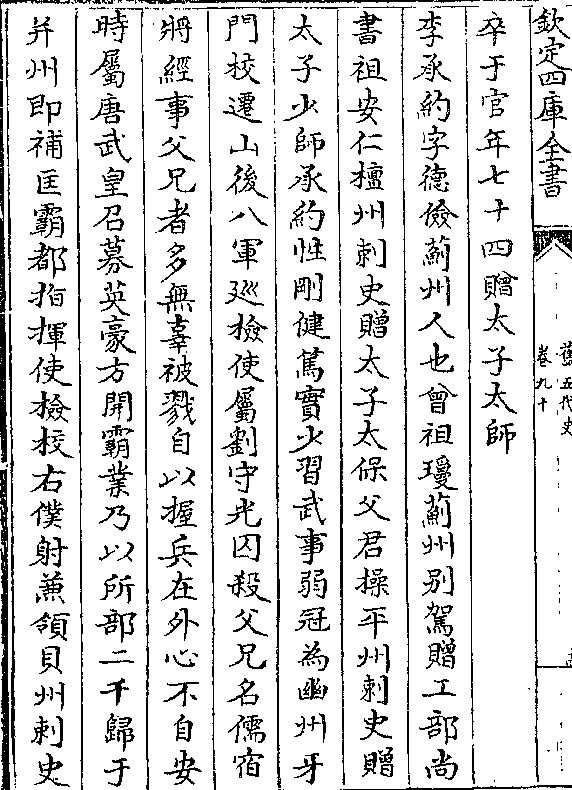 欽定四庫全書
舊五代史
卷九十
卒于官年七十四贈太子太師
李承約字德儉薊州人也曾祖瓊薊州别駕贈工部尚
書祖安仁檀州刺史贈太子太保父君操平州刺史贈
太子少師承約性剛健篤實少習武事弱冠為幽州牙
門校遷山後八軍廵檢使屬劉守光囚殺父兄名儒宿
將經事父兄者多無辜被戮自以握兵在外心不自安
時屬唐武皇召募英豪方開霸業乃以所部二千歸于
并州即補匡霸都指揮使檢校右僕射兼領貝州刺史